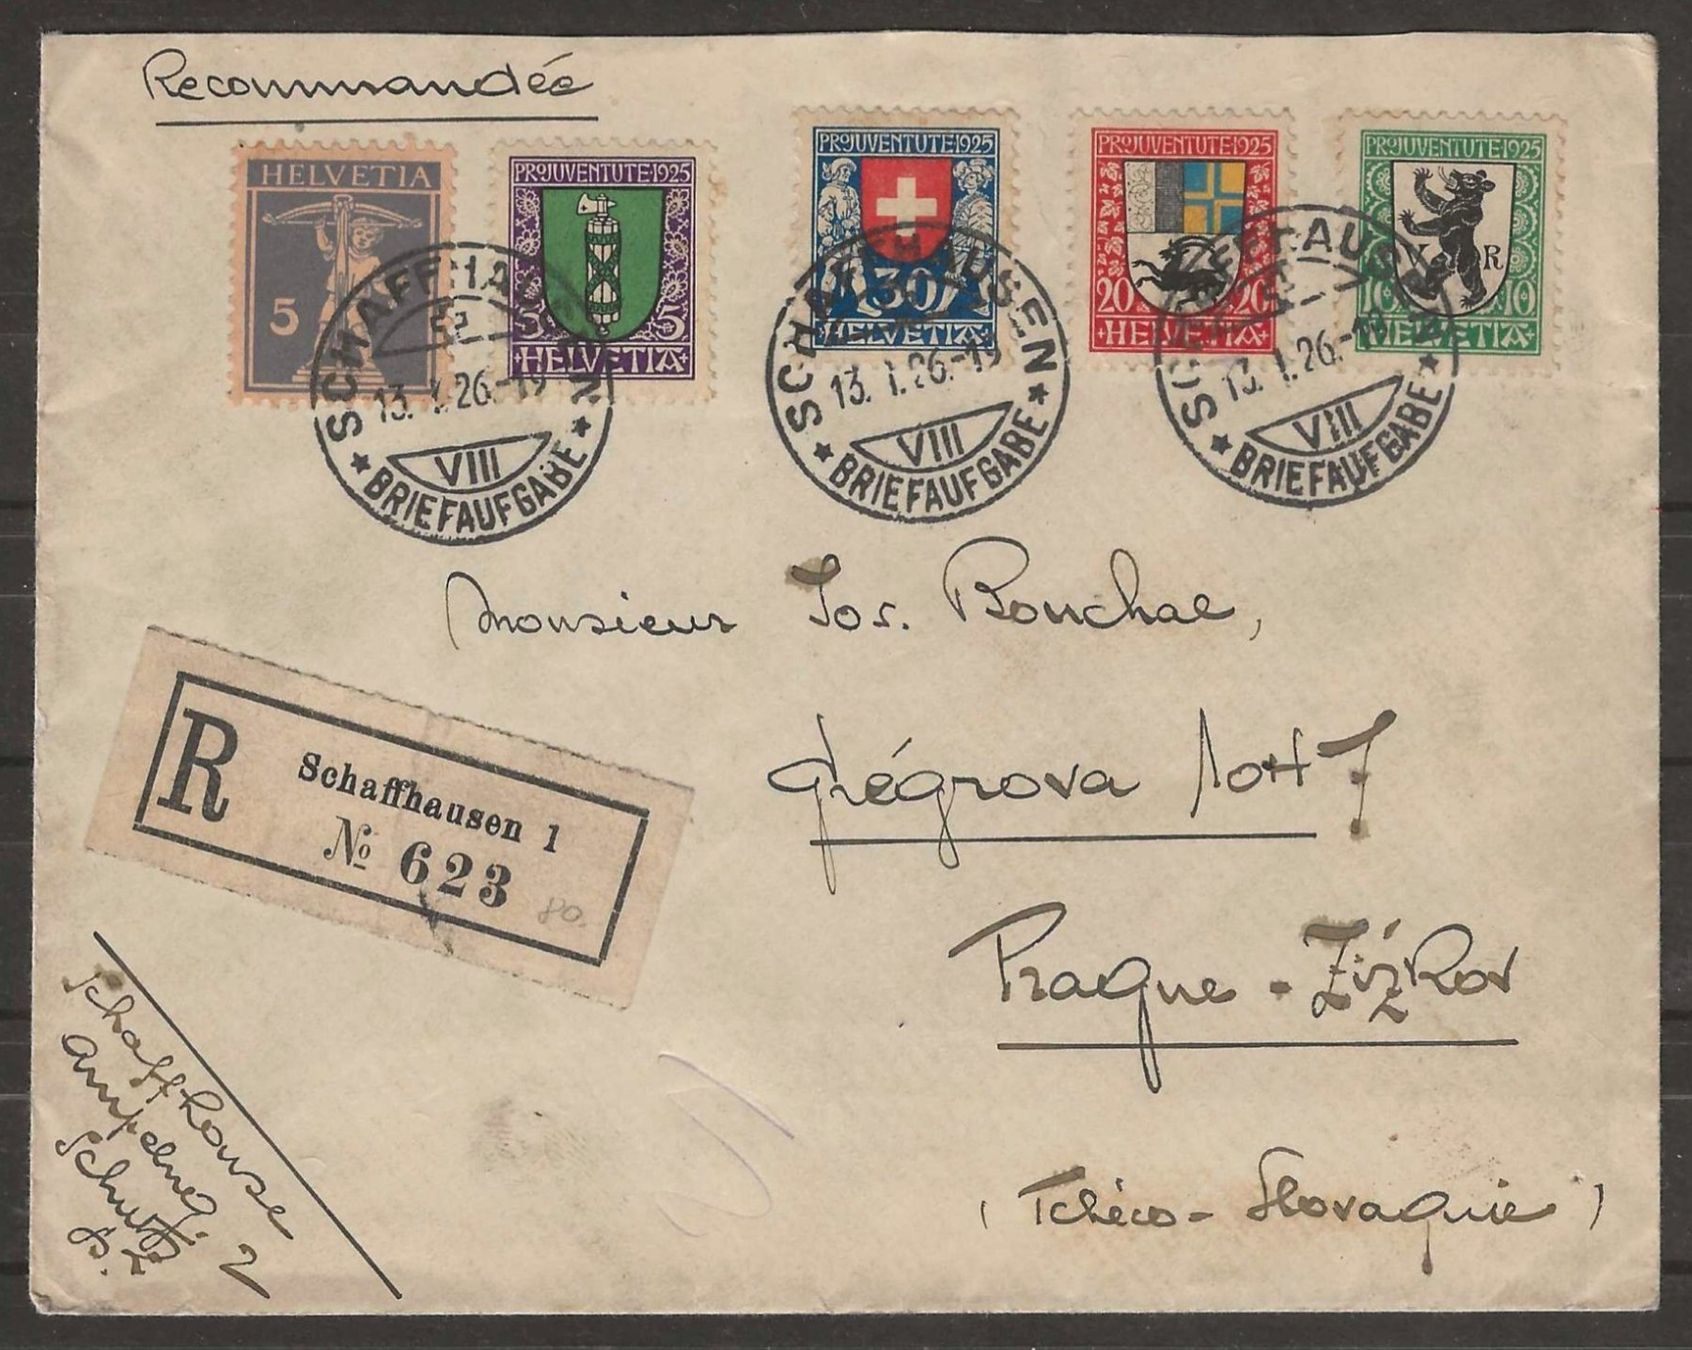 Recommandée
HELVETIA
5
PRO JUVENTUTE 1925
5 5
HELVETIA
PRO JUVENTUTE 1925
30
HELVETIA
PRO JUVENTUTE 1925
20 20
HELVETIA
PRO JUVENTUTE 1925
V R
10 10
HELVETIA
SCHAFFHAUSEN
13. I. 26.-19
VIII
BRIEFAUFGABE
SCHAFFHAUSEN
13. I. 26.-19
VIII
BRIEFAUFGABE
SCHAFFHAUSEN
13. I. 26.-19
VIII
BRIEFAUFGABE
Monsieur Jos. Bouchal,
Prague - Žižkov
(Tchéco-Slovaquie)
R
Schaffhausen 1
№ 623
80.
Schaffhouse
2